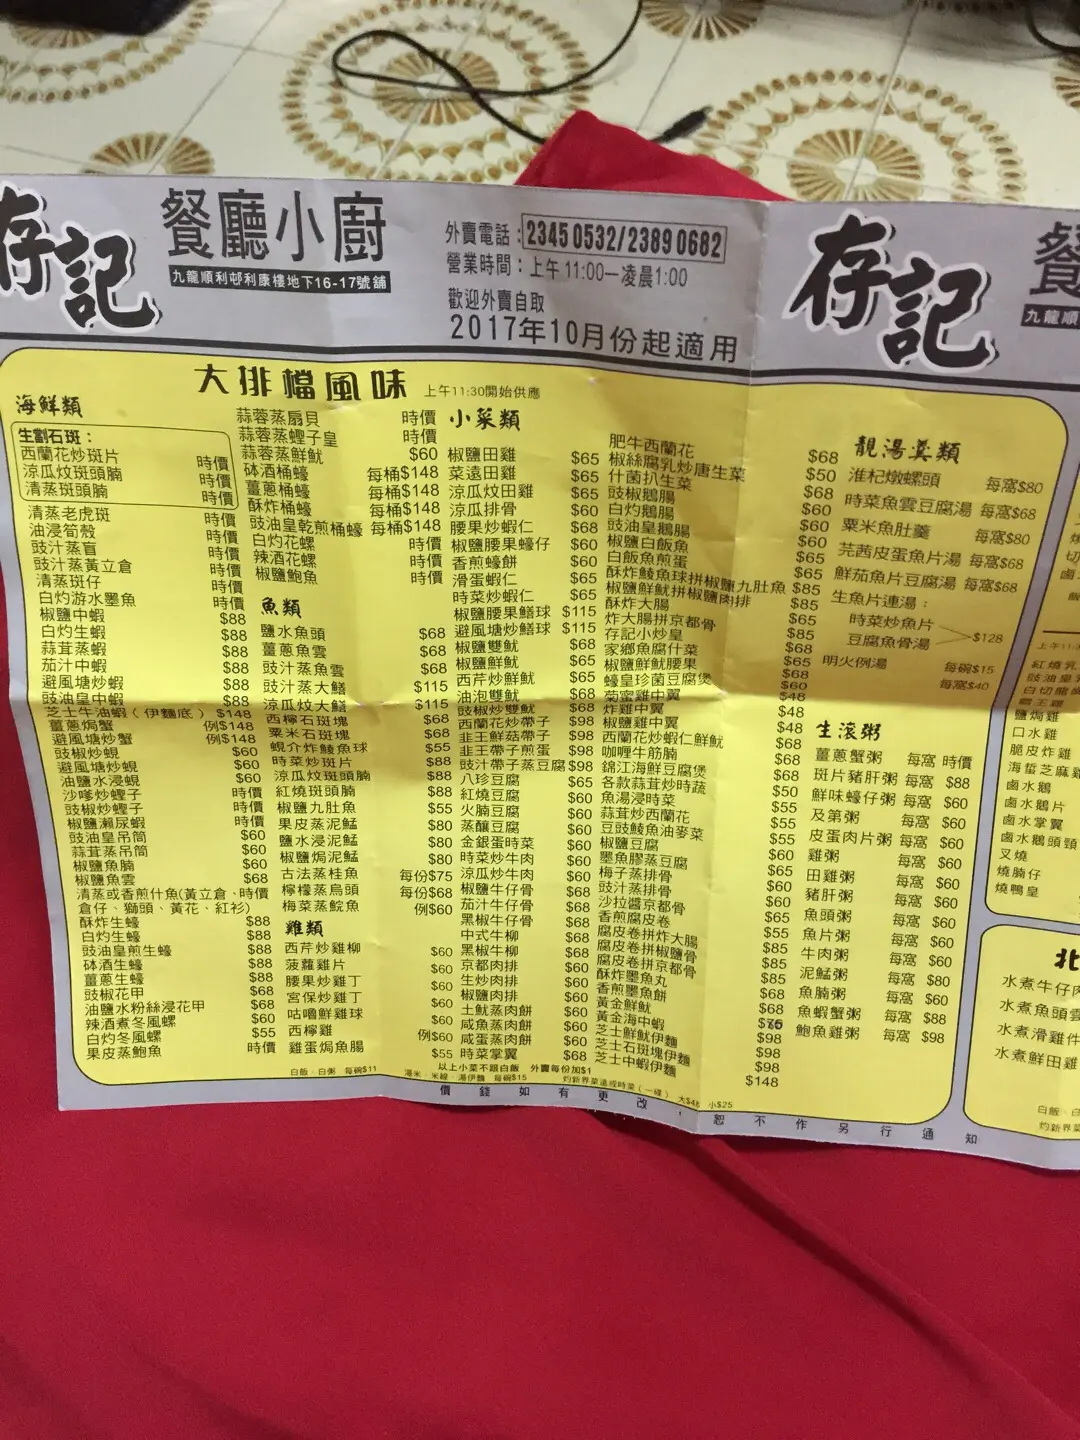 存記
餐廳小廚
九龍順利邨利康樓地下16-17號舖
外賣電話：2345 0532/2389 0682
營業時間：上午11:00—凌晨1:00
歡迎外賣自取
2017年10月份起適用
存記
餐
九龍順
大排檔風味 上午11:30開始供應
海鮮類
生劏石斑：
西蘭花炒斑片 時價
涼瓜炆斑頭腩 時價
清蒸斑頭腩 時價
清蒸老虎斑 時價
油浸筍殼 時價
豉汁蒸盲 時價
豉汁蒸黃立倉 時價
清蒸斑仔 時價
白灼游水墨魚 時價
椒鹽中蝦 $88
白灼生蝦 $88
蒜茸蒸蝦 $88
茄汁中蝦 $88
避風塘炒蝦 $88
豉油皇中蝦 $88
芝士牛油蝦（伊麵底） $148
薑蔥焗蟹 例$148
避風塘炒蟹 例$148
豉椒炒蜆 $60
避風塘炒蜆 $60
油鹽水浸蜆 $60
沙嗲炒蟶子 時價
豉椒炒蟶子 時價
椒鹽瀨尿蝦 時價
豉油皇吊筒 $60
蒜茸蒸吊筒 $60
椒鹽魚腩 $60
椒鹽魚雲 $68
清蒸或香煎什魚(黃立倉、時價
倉仔、獅頭、黃花、紅衫)
酥炸生蠔 $88
白灼生蠔 $88
豉油皇煎生蠔 $88
砵酒生蠔 $88
薑蔥生蠔 $88
豉椒花甲 $68
油鹽水粉絲浸花甲 $68
辣酒煮冬風螺 $60
白灼冬風螺 $55
果皮蒸鮑魚 時價
蒜蓉蒸扇貝 時價
蒜蓉蒸蟶子皇 時價
蒜蓉蒸鮮魷 $60
砵酒桶蠔 每桶$148
薑蔥桶蠔 每桶$148
酥炸桶蠔 每桶$148
豉油皇乾煎桶蠔 每桶$148
白灼花螺 時價
辣酒花螺 時價
椒鹽鮑魚 時價
魚類
鹽水魚頭 $68
薑蔥魚雲 $68
豉汁蒸魚雲 $68
豉汁蒸大鱔 $115
涼瓜炆大鱔 $115
西檸石斑塊 $68
粟米石斑塊 $68
蜆介炸鯪魚球 $55
時菜炒斑片 $88
涼瓜炆斑頭腩 $88
紅燒斑頭腩 $88
椒鹽九肚魚 $55
果皮蒸泥鯭 $80
鹽水浸泥鯭 $80
椒鹽焗泥鯭 $80
古法蒸桂魚 每份$75
檸檬蒸烏頭 每份$68
梅菜蒸鯇魚 例$60
雞類
西芹炒雞柳 $60
菠蘿雞片 $60
腰果炒雞丁 $60
宮保炒雞丁 $60
咕嚕鮮雞球 $60
西檸雞 例$60
雞蛋焗魚腸 $55
小菜類
椒鹽田雞 $65
菜遠田雞 $65
涼瓜炆田雞 $65
涼瓜排骨 $60
腰果炒蝦仁 $68
椒鹽腰果蠔仔 $60
香煎蠔餅 $60
滑蛋蝦仁 $65
時菜炒蝦仁 $65
椒鹽腰果鱔球 $115
避風塘炒鱔球 $115
椒鹽雙魷 $68
椒鹽鮮魷 $65
西芹炒鮮魷 $65
油泡雙魷 $68
豉椒炒雙魷 $68
西蘭花炒帶子 $98
韭王鮮菇帶子 $98
韭王帶子煎蛋 $98
豉汁帶子蒸豆腐 $98
八珍豆腐 $65
紅燒豆腐 $60
火腩豆腐 $60
蒸釀豆腐 $60
金銀蛋時菜 $60
時菜炒牛肉 $60
涼瓜炒牛肉 $60
椒鹽牛仔骨 $98
茄汁牛仔骨 $98
黑椒牛仔骨 $98
中式牛柳 $68
黑椒牛柳 $68
京都肉排 $60
生炒肉排 $60
椒鹽肉排 $60
土魷蒸肉餅 $60
咸魚蒸肉餅 $60
咸蛋蒸肉餅 $60
時菜掌翼 $68
肥牛西蘭花 $68
椒絲腐乳炒唐生菜 $50
什菌扒生菜 $68
豉椒鵝腸 $60
白灼鵝腸 $60
豉油皇鵝腸 $60
椒鹽白飯魚 $65
白飯魚煎蛋 $65
酥炸鯪魚球拼椒鹽九肚魚 $85
椒鹽鮮魷拼椒鹽肉排 $85
酥炸大腸 $65
炸大腸拼京都骨 $85
存記小炒皇 $68
家鄉魚腐什菜 $65
椒鹽鮮魷腰果 $68
蠔皇珍菌豆腐煲 $60
菊蜜雞中翼 $48
炸雞中翼 $48
椒鹽雞中翼 $48
西蘭花炒蝦仁鮮魷 $68
咖喱牛筋腩 $68
錦江海鮮豆腐煲 $68
各款蒜茸炒時蔬 $50
魚湯浸時菜 $55
蒜茸炒西蘭花 $55
豆豉鯪魚油麥菜 $60
椒鹽豆腐 $65
墨魚膠蒸豆腐 $60
梅子蒸排骨 $60
豉汁蒸排骨 $60
沙拉醬京都骨 $65
香煎腐皮卷 $55
腐皮卷拼炸大腸 $85
腐皮卷拼椒鹽骨 $85
腐皮卷拼京都骨 $85
酥炸墨魚丸 $68
香煎墨魚餅 $68
黃金鮮魷
黃金海中蝦 $98
芝士鮮魷伊麵 $98
芝士石斑塊伊麵 $98
芝士中蝦伊麵 $148
靚湯羹類
淮杞燉螺頭 每窩$80
時菜魚雲豆腐湯 每窩$68
粟米魚肚羹 每窩$80
芫茜皮蛋魚片湯 每窩$68
鮮茄魚片豆腐湯 每窩$68
生魚片連湯：
時菜炒魚片
豆腐魚骨湯 $128
明火例湯 每碗$15
每窩$40
生滾粥
薑蔥蟹粥 每窩 時價
斑片豬肝粥 每窩 $88
鮮味蠔仔粥 每窩 $60
及第粥 每窩 $60
皮蛋肉片粥 每窩 $60
雞粥 每窩 $60
田雞粥 每窩 $60
豬肝粥 每窩 $60
魚頭粥 每窩 $60
魚片粥 每窩 $60
牛肉粥 每窩 $60
泥鯭粥 每窩 $80
魚腩粥 每窩 $60
魚蝦蟹粥 每窩 $88
鮑魚雞粥 每窩 $98
以上小菜不跟白飯 外賣每份加$1
白飯、白粥 每碗$11
湯米、米線、湯伊麵 每碗$15
灼新界菜遠或時菜（一碟） 大$48 小$25
價錢如有更改，恕不作另行通知
上午11:
紅燒乳
豉油皇
白切龍崗
霸王雞
鹽焗雞
口水雞
脆皮炸雞
海蜇芝麻雞
鹵水鵝
鹵水鵝片
鹵水掌翼
鹵水鵝頭頸
叉燒
燒腩仔
燒鴨皇
北
水煮牛仔肉
水煮魚頭雲
水煮滑雞件
水煮鮮田雞
白飯、白
灼新界菜